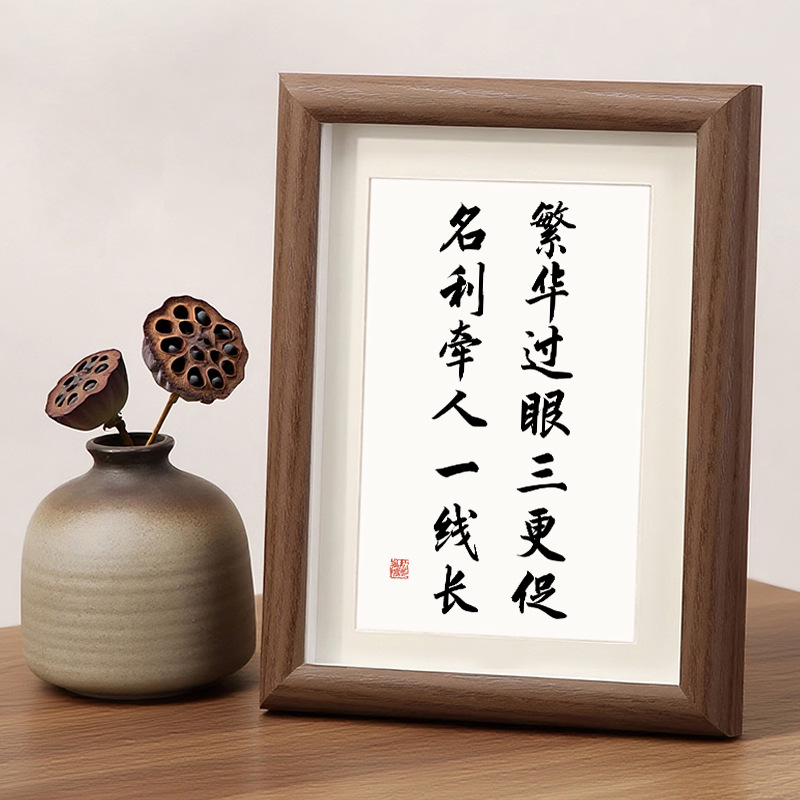 繁华过眼三更促
名利牵人一线长